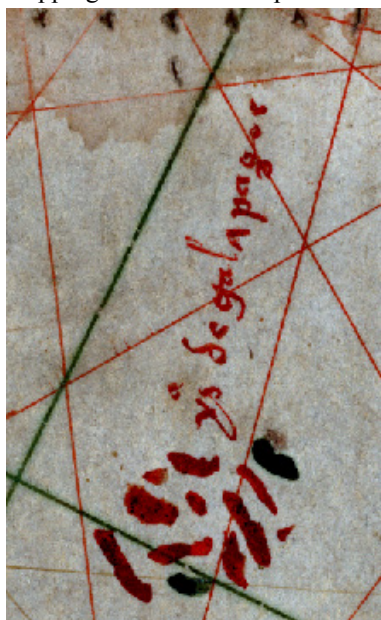 ys de galapagos